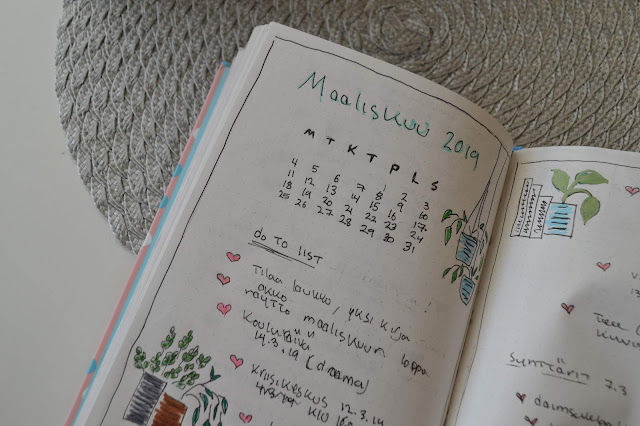 Maaliskuu 2019
M T K T P L S
1 2 3
4 5 6 7 8 9 10
11 12 13 14 15 16 17
18 19 20 21 22 23 24
25 26 27 28 29 30 31
DO TO LIST
Tilaa laukku, yksi kirja!
näyttö maaliskuun loppu
Koulupäivä
14.3.19 (draama)
Kriisikeskus 12.3.19
Synttärit 7.3